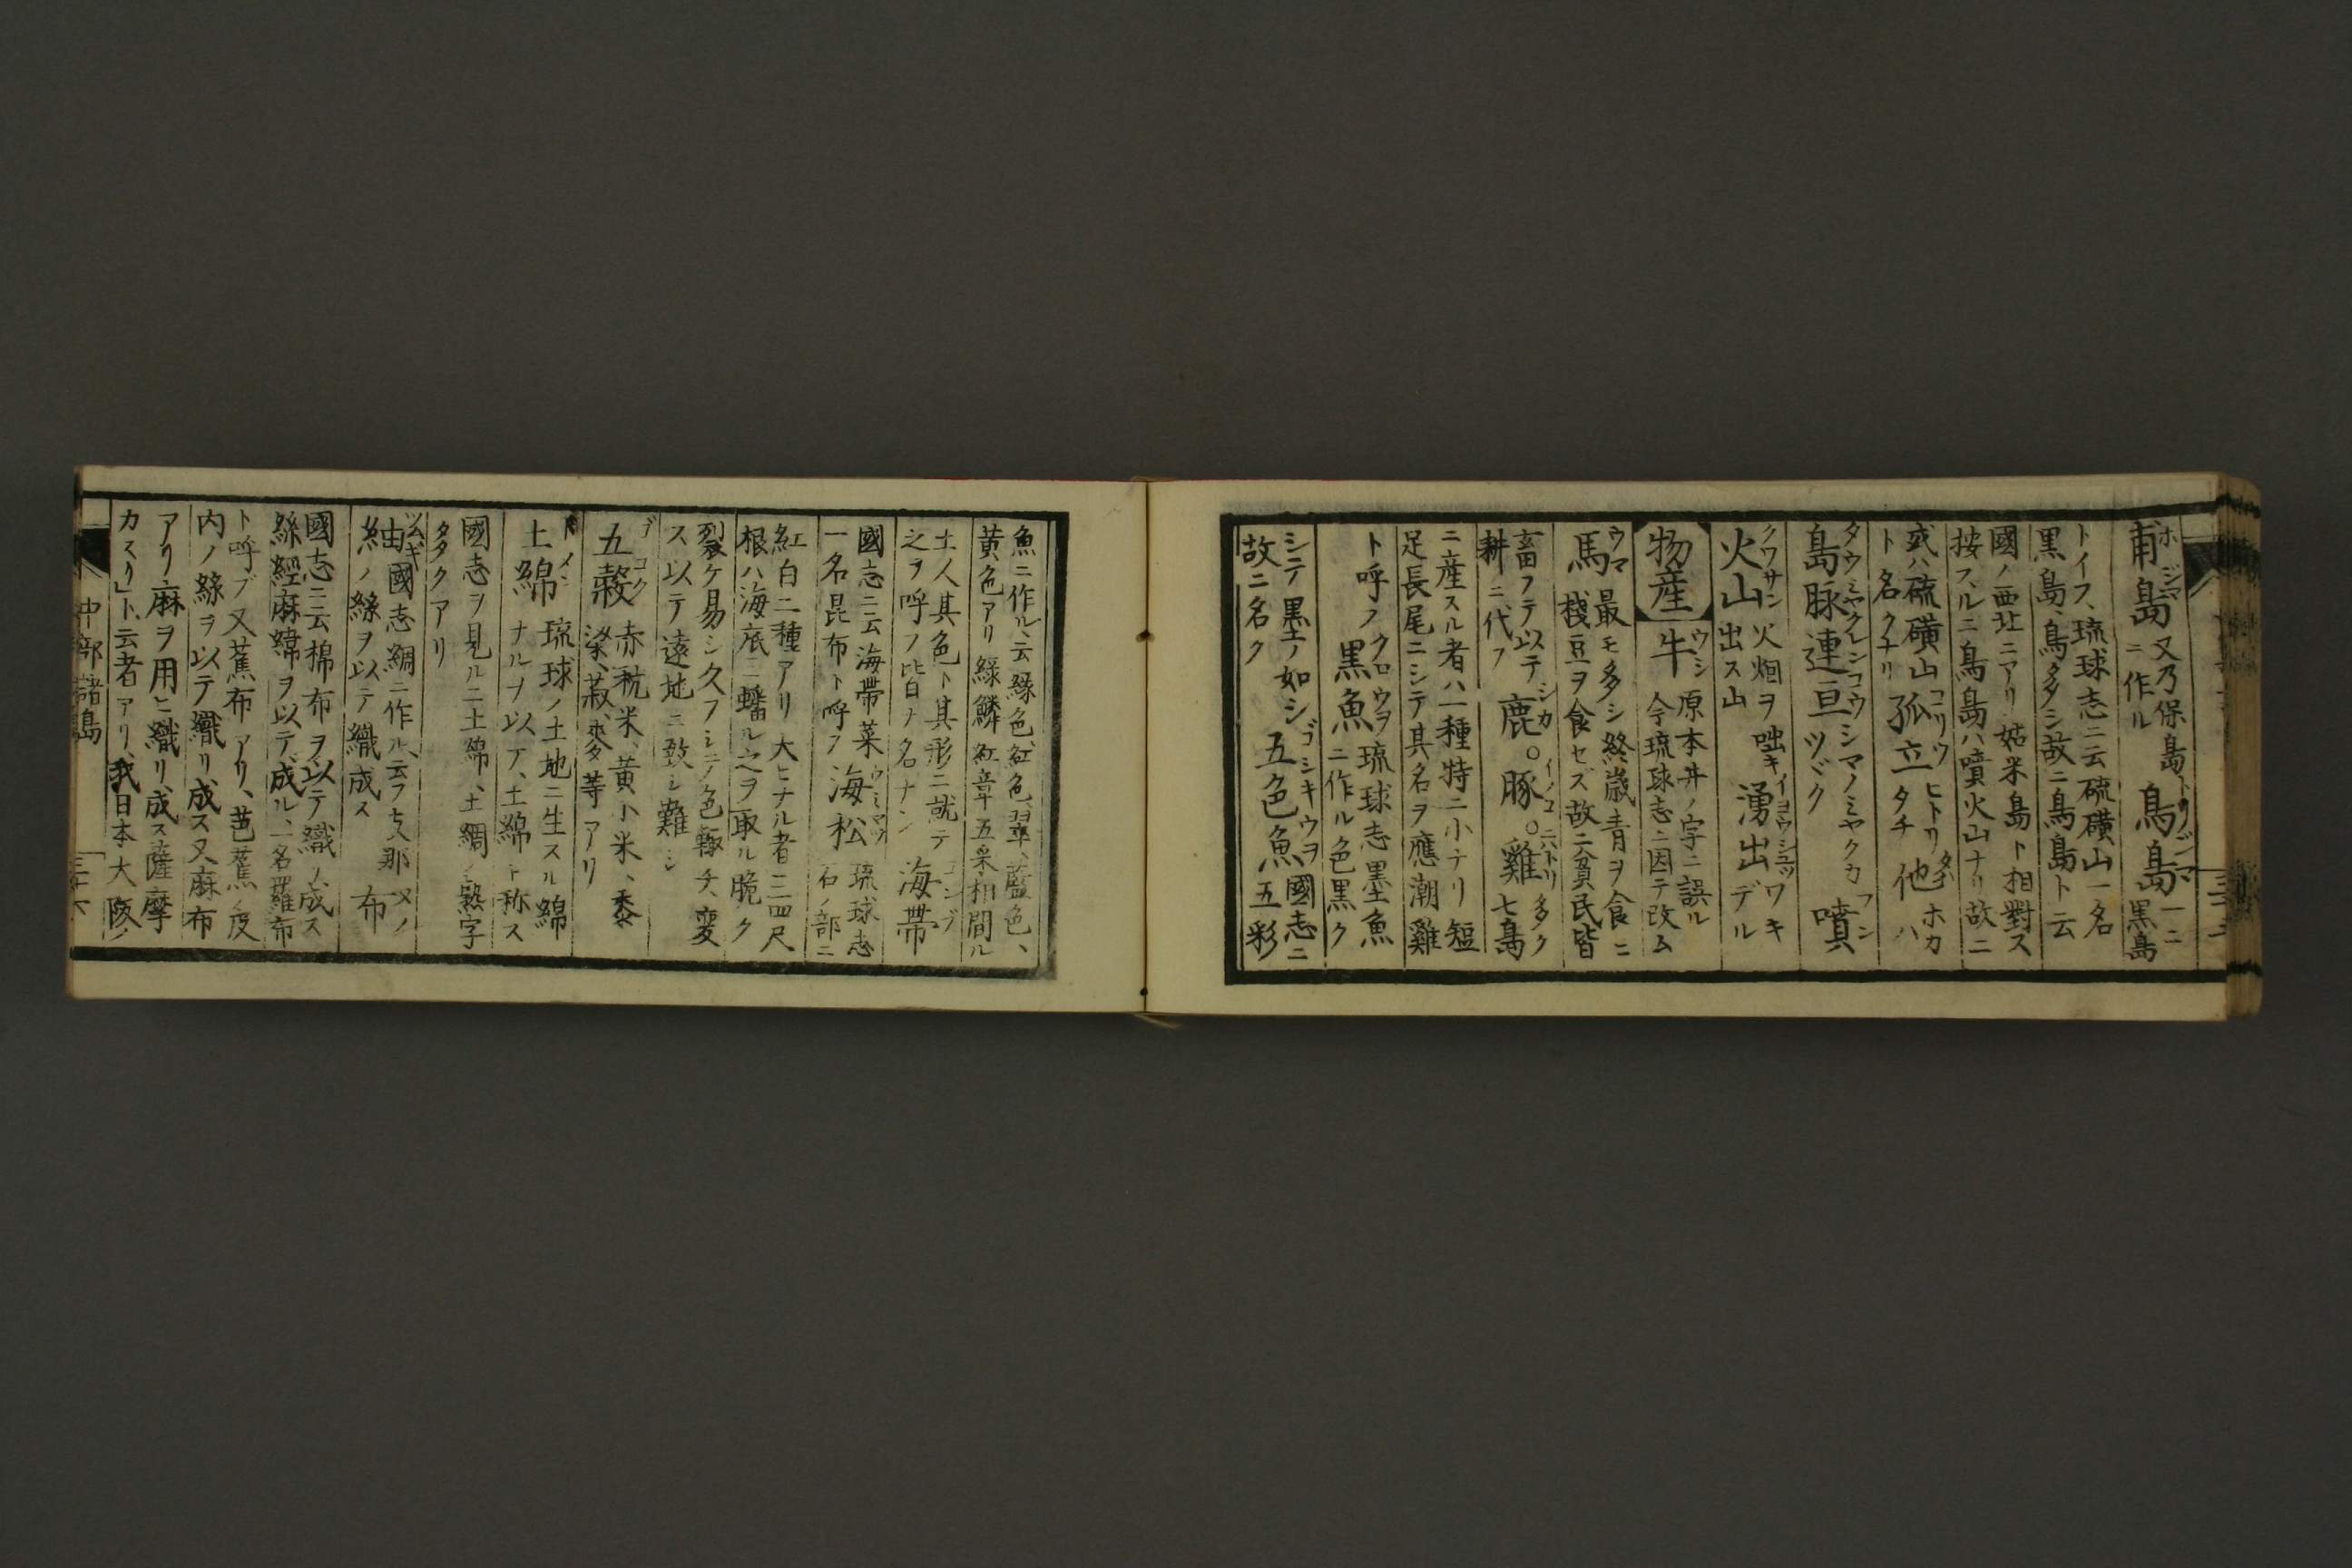 甫島 又乃保島ニ作ル 鳥島 一ニ黒島
トイフ、琉球志ニ云硫磺山一名
黒島、鳥多シ故ニ鳥島ト云
國ノ西北ニアリ姑米島ト相對ス
按スルニ鳥島ハ噴火山ナリ故ニ
或ハ硫磺山
ト名クナリ 孤立 ヒトリタチ 他 ホカハ
島脉連亘 シマノミヤクカツヾク 噴
火山 火烟ヲ咄キ出ス山 湧出 ワキデル
物産 牛 原本丼ノ字ニ誤ル今琉球志ニ因テ改ム
馬 最モ多シ終歳青ヲ食ニ
棧豆ヲ食セズ故ニ貧民皆
畜フテ以テ
耕ニ代フ 鹿○豚○雞 多ク七島
ニ産スル者ハ一種特ニ小ナリ短
足長尾ニシテ其名ヲ應潮雞
ト呼フ 黒魚 琉球志墨魚ニ作ル色黒ク
シテ墨ノ如シ
故ニ名ク 五色魚 國志ニ五彩
魚ニ作ル、云緑色、紅色、翠、藍色、
黄色アリ緑鱗紅章五采相間ル
土人其色ト其形ニ就テ
之ヲ呼フ皆ナ名ナシ 海帶
國志ニ云海帶菜
一名昆布ト呼フ 海松 琉球志石ノ部ニ
紅白二種アリ大ヒナル者ニ三四尺
根ハ海底ニ蟠ル之ヲ取ル脆ク
裂ケ易シ久フシテ色輙チ変
ス以テ遠地ニ致シ難シ
五穀 赤秔米、黄小米、黍
粱、菽、麥等アリ
土綿 琉球ノ土地ニ生スル綿
ナルヲ以テ、土綿ト称ス
國志ヲ見ルニ土綿、土綢ノ熟字
タタクアリ
紬 國志綢ニ作ル、云フ支那ノ
絲ヲ以テ織成ス 布
國志ニ云棉布ヲ以テ織ノ成ス
絲經麻緯ヲ以テ成ル、一名羅布
ト呼ブ又蕉布アリ、芭蕉ノ皮
内ノ絲ヲ以テ織リ成ス又麻布
アリ麻ヲ用ヒ織リ成ス薩摩
カスリ」ト云者アリ、我日本大阪ノ
中部諸島